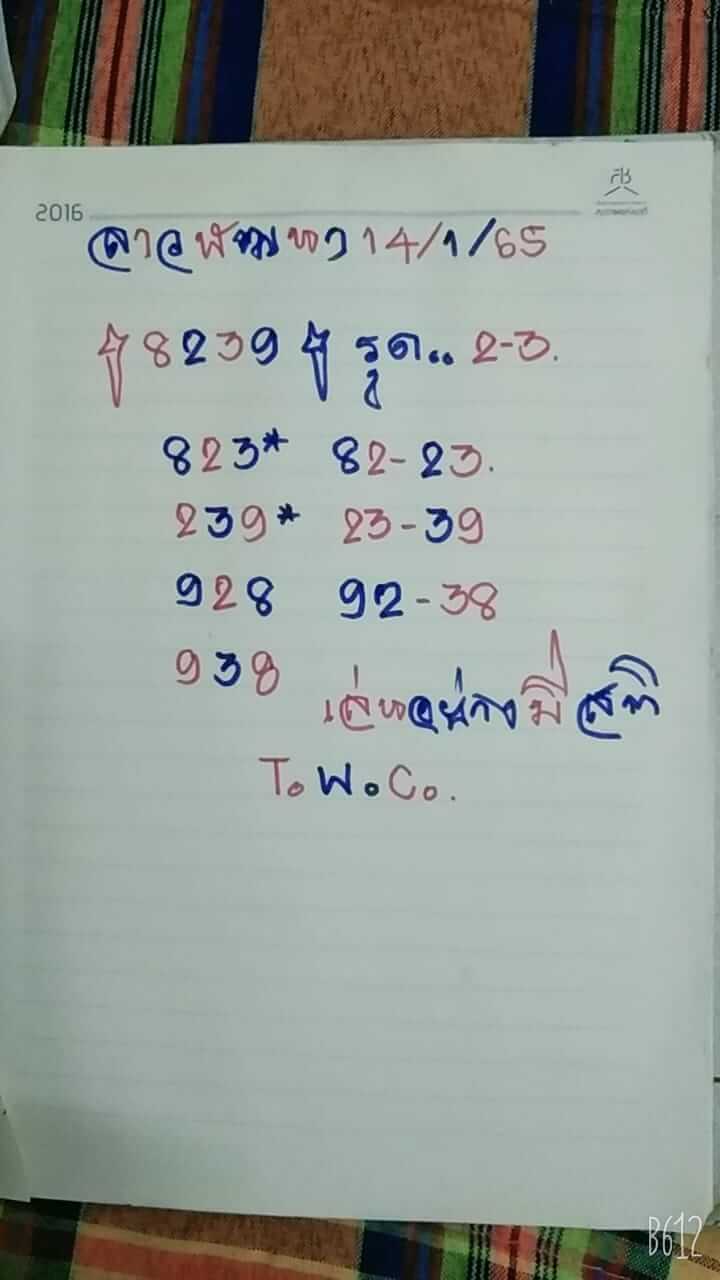 2016
ลาวพัฒนา 14/1/65
8239 รูด.. 2-3.
823* 82-23.
239* 23-39
928 92-38
938
เล่นอย่างมีสติ
T.W.C.
B612